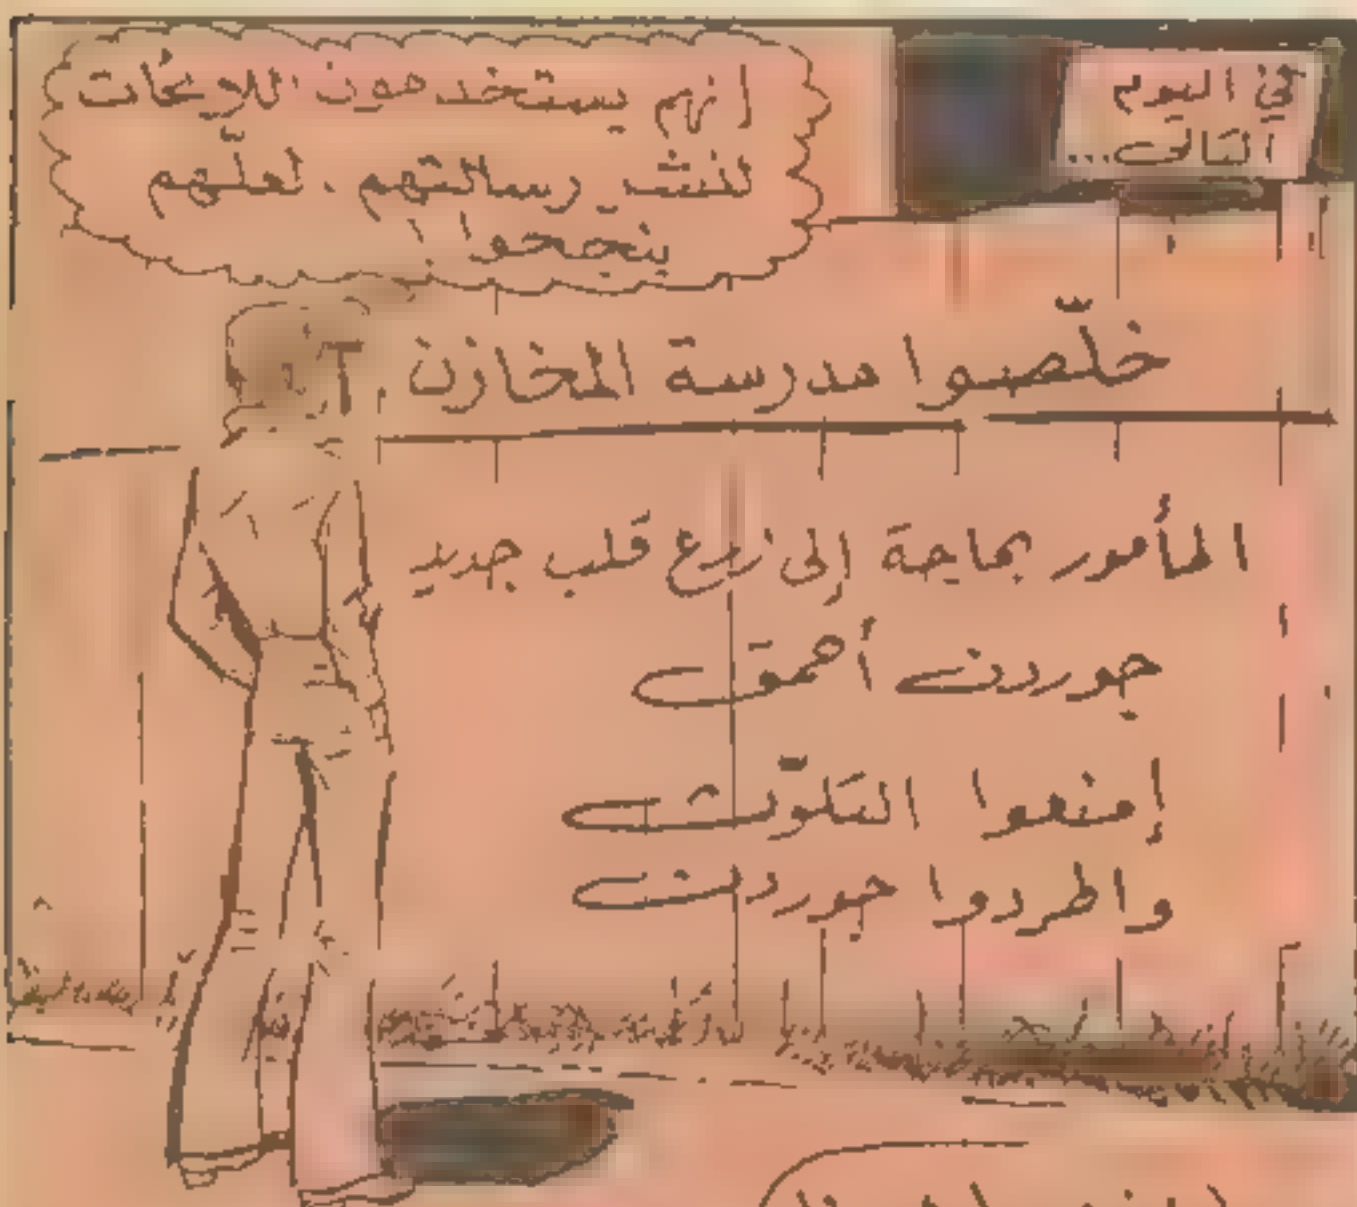 في اليوم
التالي...
إنهم يستخدمون اللوحات
لنشر رسالتهم. لعلّهم
ينجحوا!
خلّصوا مدرسة المخازن
المأمور بحاجة إلى زرع قلب جديد
جوردن أحمق
إمنعوا التلوّث
واطردوا جوردن